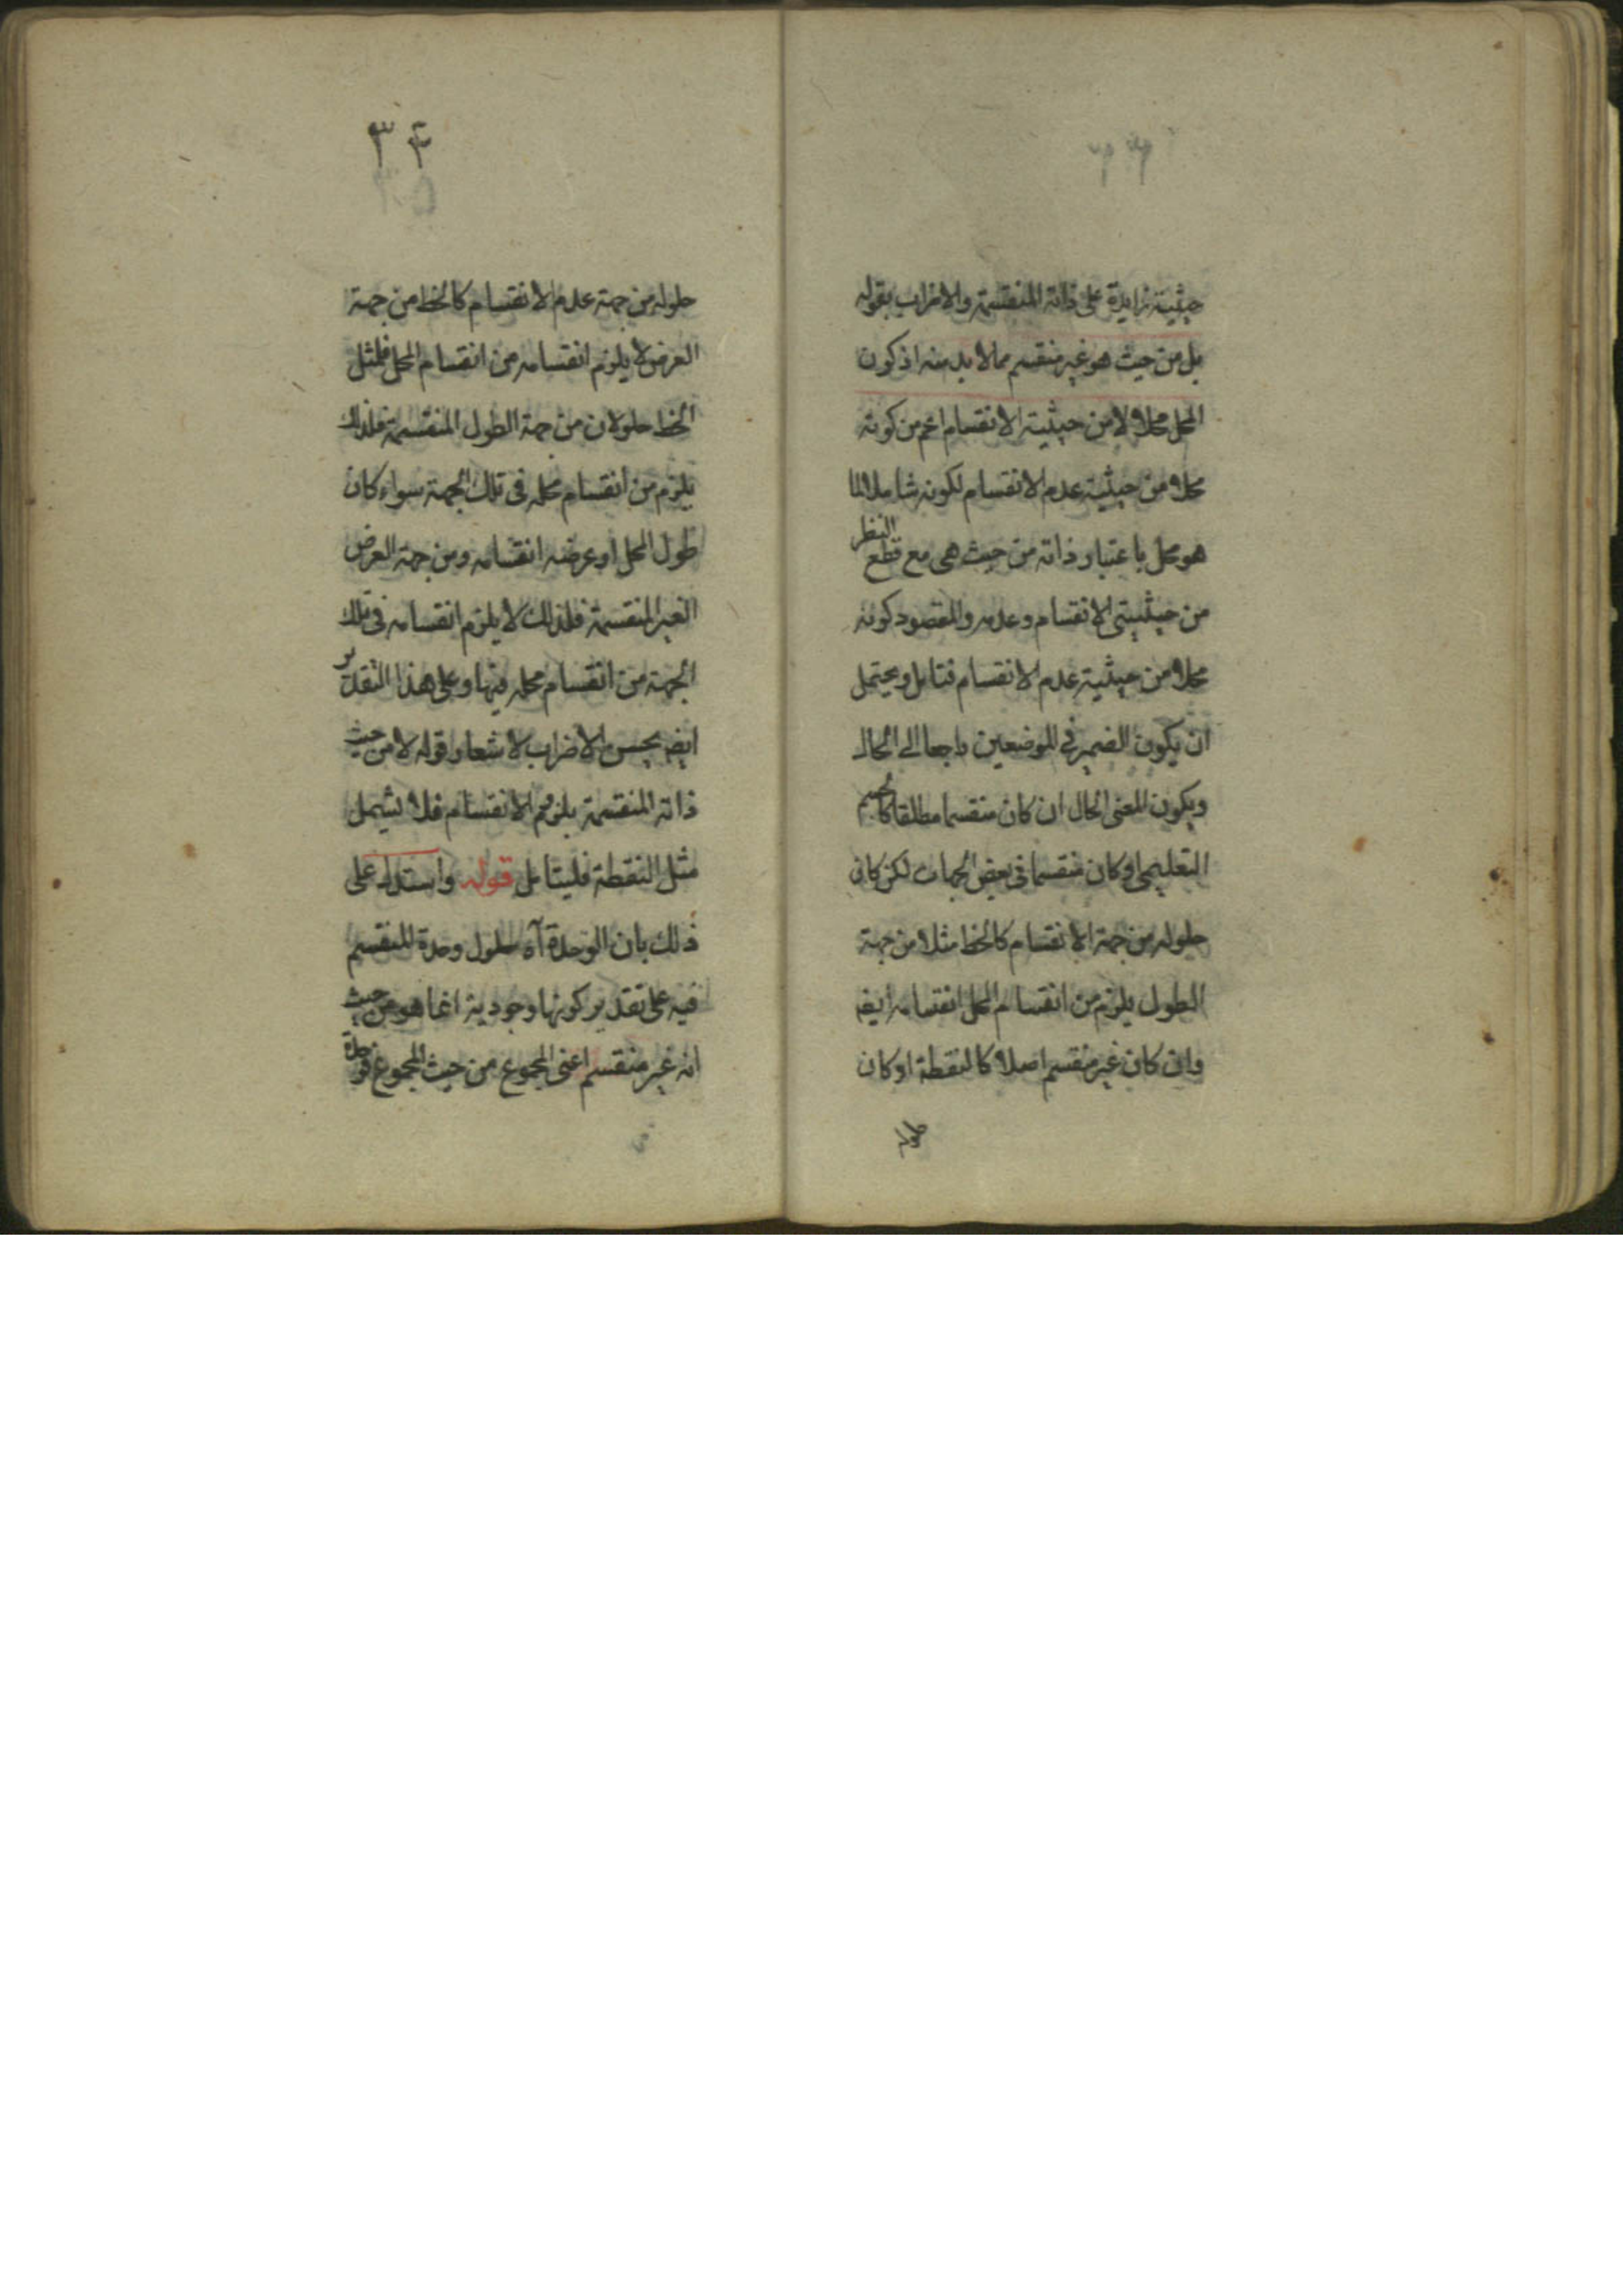 حيثية زايدة على ذاته المنقسمة والاضراب بقوله
بل من حيث هو غير منقسم مما لا بد منه اذ كون
المحل محلا لا من حيثية الانقسام اعم من كونه
محلا من حيثية عدم الانقسام لكونه شاملا لما
هو محل باعتبار ذاته من حيث هى مع قطع النظر
من حيثيتى الانقسام وعدمه والمقصود كونه
محلا من حيثية عدم الانقسام فتامل ويحتمل
ان يكون الضمير فى الموضعين راجعا الى الحال
ويكون المعنى الحال ان كان منقسما مطلقا كالجسم
التعليمى او كان منقسما فى بعض الجهات لكن كان
حلوله من جهة الانقسام كالخط مثلا من جهة
الطول يلزم من انقسام المحل انقسامه ايضه
وان كان غير منقسم اصلا كالنقطة او كان
٣٤
حلوله من جهة عدم الانقسام كالخط من جهة
العرض لا يلزم انقسامه من انقسام المحل فلمثل
الخط حلولان من جهة الطول المنقسمة فلذلك
يلزم من انقسام محله فى تلك الجهة سواء كان
طول المحل او عرضه انقسامه ومن جهة العرض
الغير المنقسمة فلذلك لا يلزم انقسامه فى تلك
الجهة من انقسام محله فيها وعلى هذا التقدير
ايضه يحسن الاضراب لاشعار قوله لا من حيث
ذاته المنقسمة بلزوم الانقسام فلا يشمل
مثل النقطة فليتامل قوله واستدل على
ذلك بان الوحدة آه حلول وحدة المنقسم
فيه على تقدير كونها وجودية انما هو من حيث
انه غير منقسم اعنى المجموع من حيث المجموع فوحدة